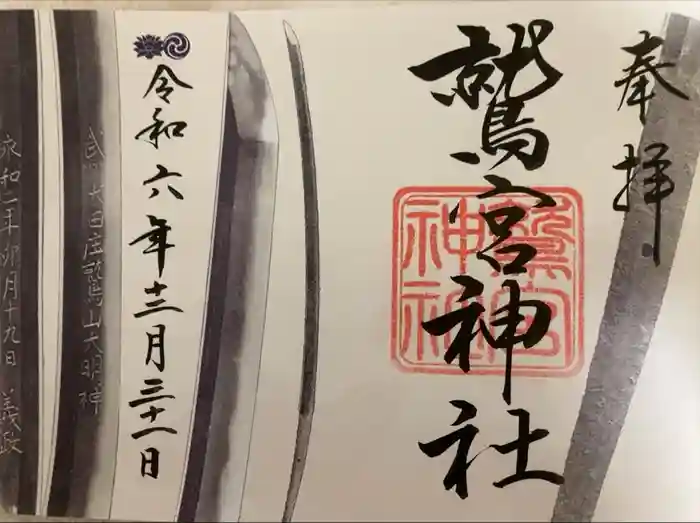 奉拝
鷲宮神社
鷲宮
神社
令和六年十二月三十一日
武 大田庄鷲山大明神
永和二年卯月十九日 義政